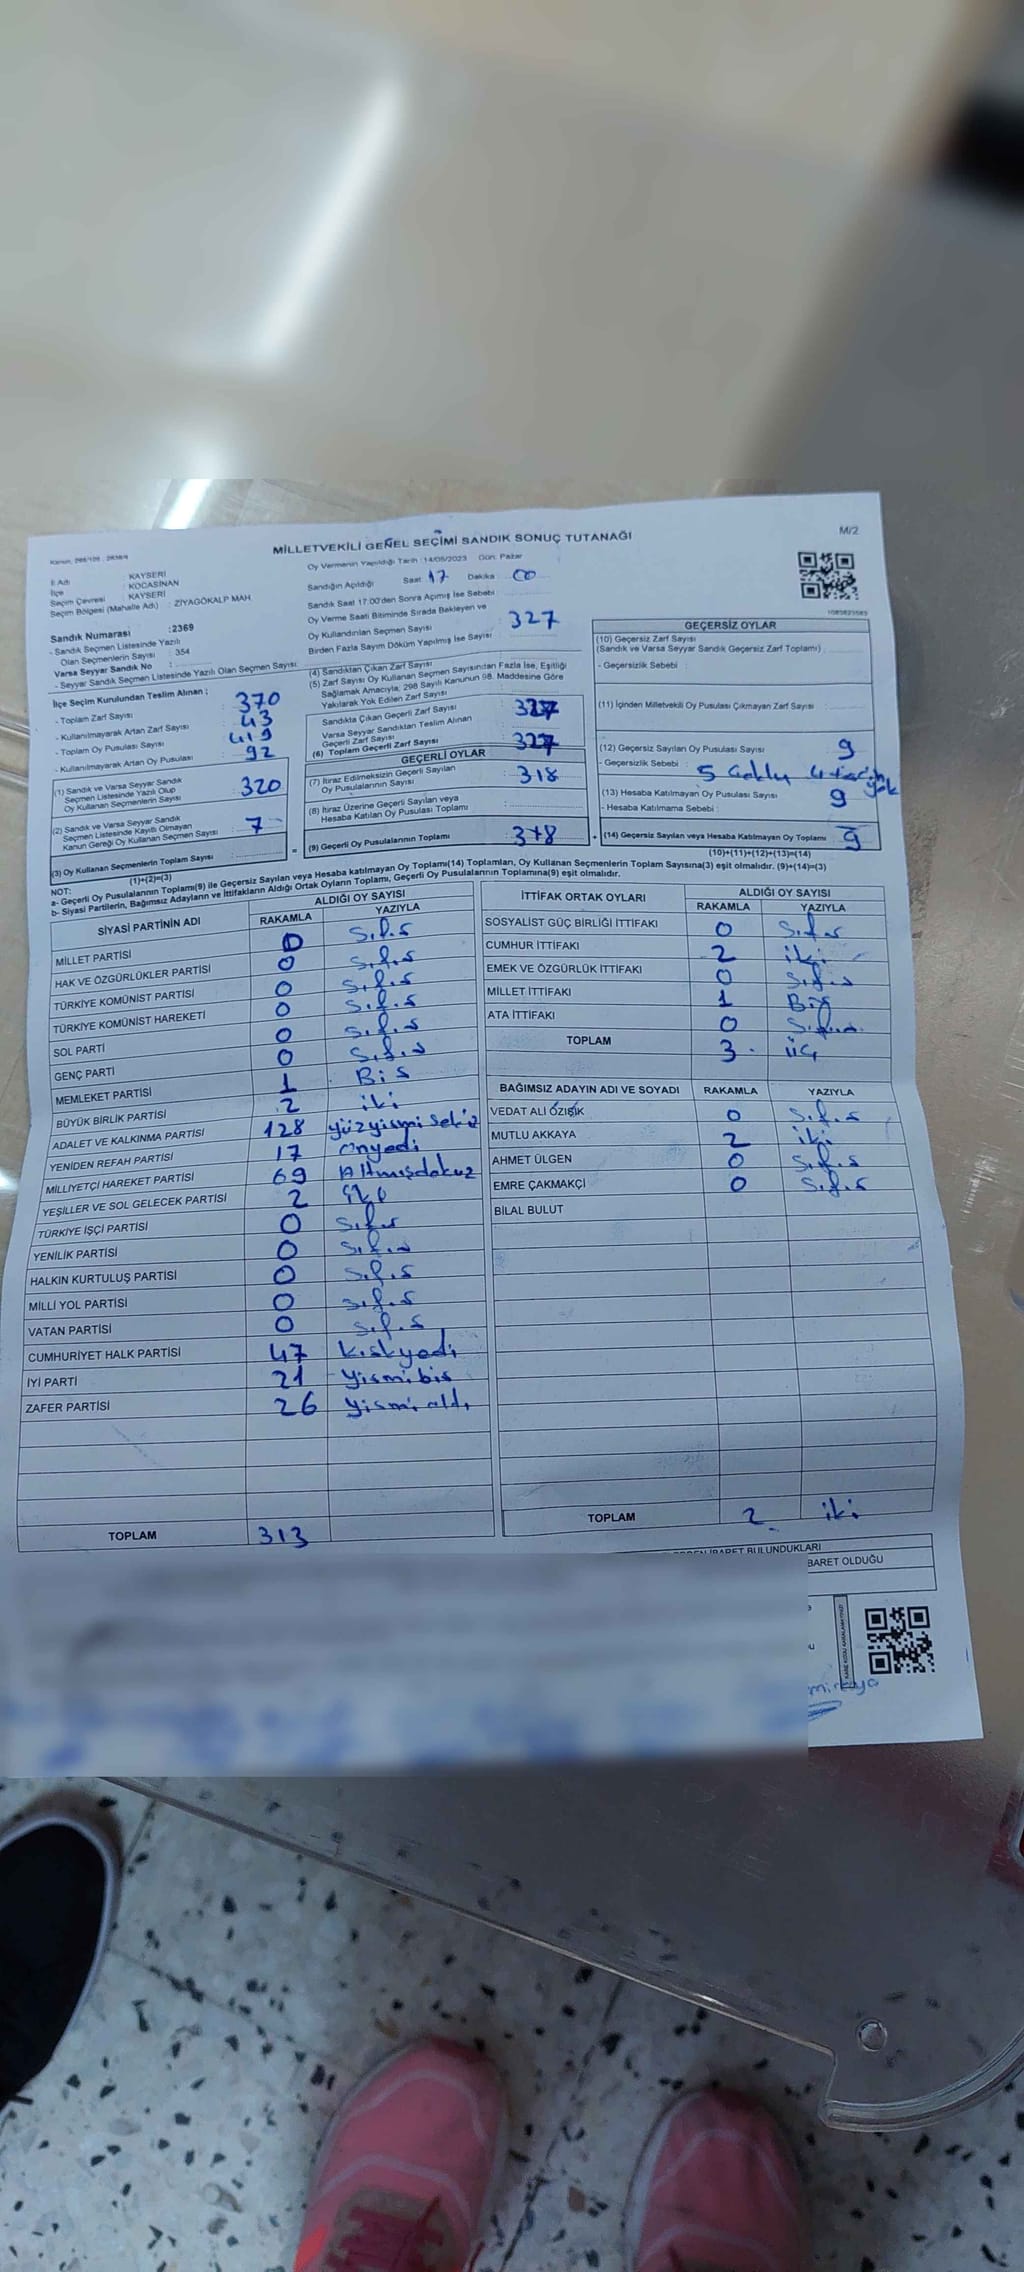 M/2
MİLLETVEKİLİ GENEL SEÇİMİ SANDIK SONUÇ TUTANAĞI
İl Adı KAYSERİ
İlçe KOCASİNAN
Seçim Çevresi KAYSERİ
Seçim Bölgesi (Mahalle Adı) : ZİYAGÖKALP MAH.
Sandık Numarası :2369
- Sandık Seçmen Listesinde Yazılı
Olan Seçmenlerin Sayısı : 354
Varsa Seyyar Sandık No :
- Seyyar Sandık Seçmen Listesinde Yazılı Olan Seçmen Sayısı:
Oy Vermenin Yapıldığı Tarih : 14/05/2023 Gün: Pazar
Sandığın Açıldığı Saat 17 Dakika 00
Sandık Saat 17.00'den Sonra Açılmış İse Sebebi
Oy Verme Saati Bitiminde Sırada Bekleyen ve
Oy Kullandırılan Seçmen Sayısı
Birden Fazla Sayım Döküm Yapılmış İse Sayısı
327
İlçe Seçim Kurulundan Teslim Alınan ;
- Toplam Zarf Sayısı : 370
- Kullanılmayarak Artan Zarf Sayısı : 43
- Toplam Oy Pusulası Sayısı : 419
- Kullanılmayarak Artan Oy Pusulası : 92
(1) Sandık ve Varsa Seyyar Sandık
Seçmen Listesinde Yazılı Olup
Oy Kullanan Seçmenlerin Sayısı 320
(2) Sandık ve Varsa Seyyar Sandık
Seçmen Listesinde Kayıtlı Olmayan
Kanun Gereği Oy Kullanan Seçmen Sayısı 7
(3) Oy Kullanan Seçmenlerin Toplam Sayısı
(1)+(2)=(3)
(4) Sandıktan Çıkan Zarf Sayısı
(5) Zarf Sayısı Oy Kullanan Seçmen Sayısından Fazla İse, Eşitliği
Sağlamak Amacıyla; 298 Sayılı Kanunun 98. Maddesine Göre
Yakılarak Yok Edilen Zarf Sayısı
Sandıkta Çıkan Geçerli Zarf Sayısı 327
Varsa Seyyar Sandıktan Teslim Alınan
Geçerli Zarf Sayısı
(6) Toplam Geçerli Zarf Sayısı 327
GEÇERLİ OYLAR
(7) İtiraz Edilmeksizin Geçerli Sayılan
Oy Pusulalarının Sayısı 318
(8) İtiraz Üzerine Geçerli Sayılan veya
Hesaba Katılan Oy Pusulası Toplamı
(9) Geçerli Oy Pusulalarının Toplamı 318
GEÇERSİZ OYLAR
(10) Geçersiz Zarf Sayısı
(Sandık ve Varsa Seyyar Sandık Geçersiz Zarf Toplamı)
- Geçersizlik Sebebi :
(11) İçinden Milletvekili Oy Pusulası Çıkmayan Zarf Sayısı
(12) Geçersiz Sayılan Oy Pusulası Sayısı 9
- Geçersizlik Sebebi : 5
(13) Hesaba Katılmayan Oy Pusulası Sayısı 9
- Hesaba Katılmama Sebebi :
(14) Geçersiz Sayılan veya Hesaba Katılmayan Oy Toplamı 9
(10)+(11)+(12)+(13)=(14)
NOT:
a- Geçerli Oy Pusulalarının Toplamı(9) ile Geçersiz Sayılan veya Hesaba katılmayan Oy Toplamı(14) Toplamları, Oy Kullanan Seçmenlerin Toplam Sayısına(3) eşit olmalıdır. (9)+(14)=(3)
b- Siyasi Partilerin, Bağımsız Adayların ve İttifakların Aldığı Ortak Oyların Toplamı, Geçerli Oy Pusulalarının Toplamına(9) eşit olmalıdır.
SİYASİ PARTİNİN ADI ALDIĞI OY SAYISI
RAKAMLA YAZIYLA
MİLLET PARTİSİ 0 Sıfır
HAK VE ÖZGÜRLÜKLER PARTİSİ 0 Sıfır
TÜRKİYE KOMÜNİST PARTİSİ 0 Sıfır
TÜRKİYE KOMÜNİST HAREKETİ 0 Sıfır
SOL PARTİ 0 Sıfır
GENÇ PARTİ 0 Sıfır
MEMLEKET PARTİSİ 1 Bir
BÜYÜK BİRLİK PARTİSİ 2 iki
ADALET VE KALKINMA PARTİSİ 128 yüzyirmi sekiz
YENİDEN REFAH PARTİSİ 17 onyedi
MİLLİYETÇİ HAREKET PARTİSİ 69 Altmışdokuz
YEŞİLLER VE SOL GELECEK PARTİSİ 2 iki
TÜRKİYE İŞÇİ PARTİSİ 0 Sıfır
YENİLİK PARTİSİ 0 Sıfır
HALKIN KURTULUŞ PARTİSİ 0 Sıfır
MİLLİ YOL PARTİSİ 0 Sıfır
VATAN PARTİSİ 0 Sıfır
CUMHURİYET HALK PARTİSİ 47 kırkyedi
İYİ PARTİ 21 yirmibir
ZAFER PARTİSİ 26 yirmialtı
TOPLAM 313
İTTİFAK ORTAK OYLARI ALDIĞI OY SAYISI
RAKAMLA YAZIYLA
SOSYALİST GÜÇ BİRLİĞİ İTTİFAKI 0 Sıfır
CUMHUR İTTİFAKI 2 iki
EMEK VE ÖZGÜRLÜK İTTİFAKI 0 Sıfır
MİLLET İTTİFAKI 1 Bir
ATA İTTİFAKI 0 Sıfır
TOPLAM 3 üç
BAĞIMSIZ ADAYIN ADI VE SOYADI RAKAMLA YAZIYLA
VEDAT ALİ ÖZIŞIK 0 Sıfır
MUTLU AKKAYA 2 iki
AHMET ÜLGEN 0 Sıfır
EMRE ÇAKMAKÇİ 0 Sıfır
BİLAL BULUT
TOPLAM 2 iki
BARET OLDUĞU